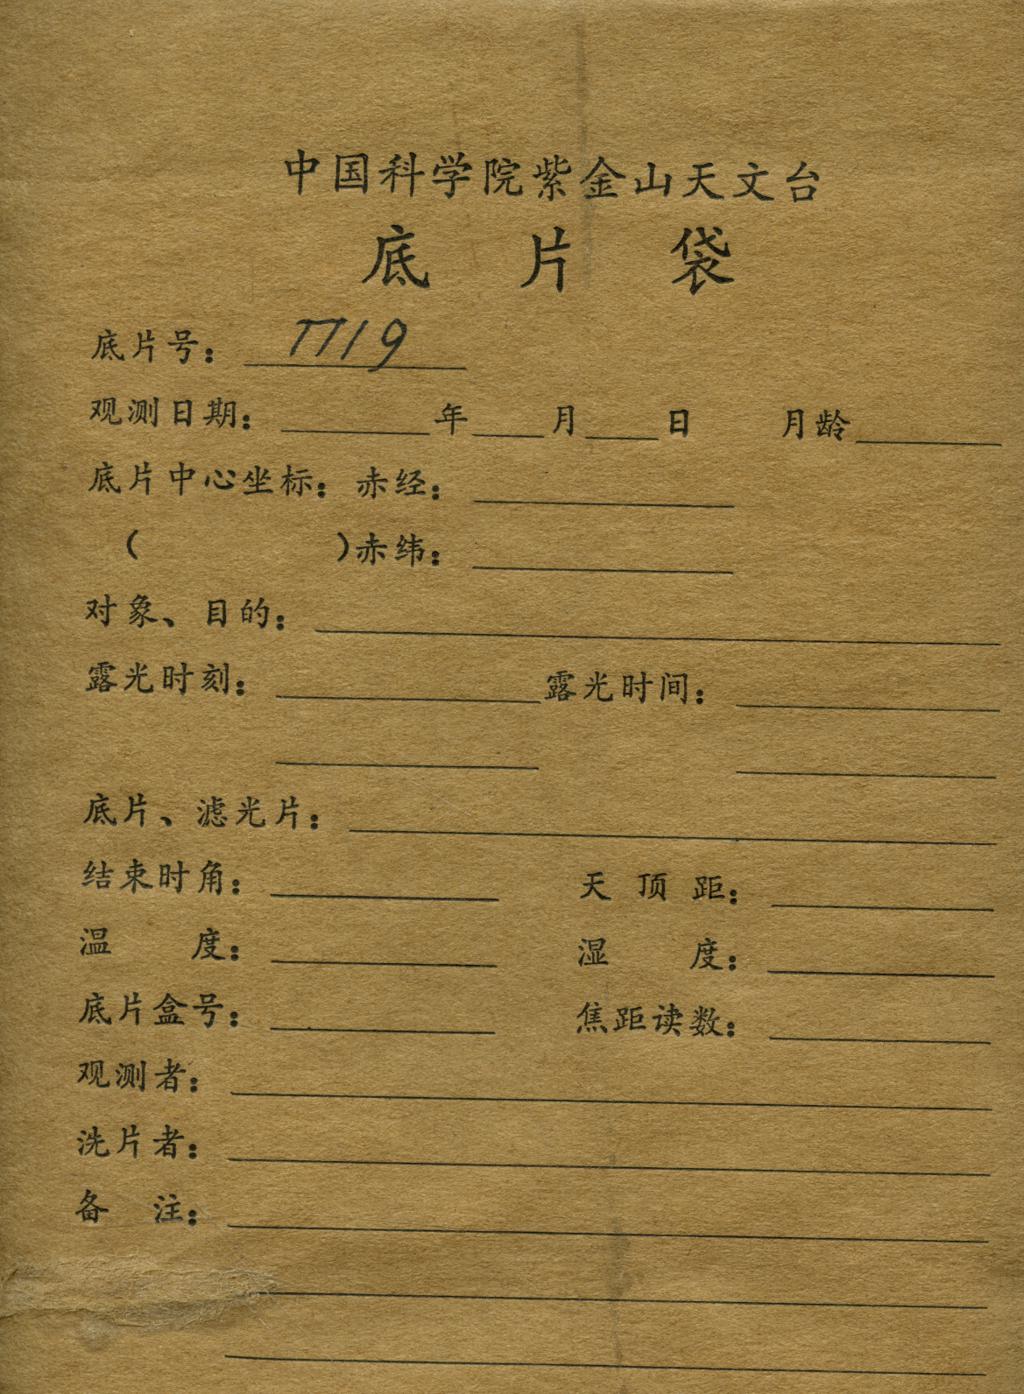 中国科学院紫金山天文台
底片袋
底片号： 7719
观测日期： 年 月 日 月龄
底片中心坐标：赤经：
（ ）赤纬：
对象、目的：
露光时刻： 露光时间：
底片、滤光片：
结束时角： 天顶距：
温度： 湿度：
底片盒号： 焦距读数：
观测者：
洗片者：
备注：